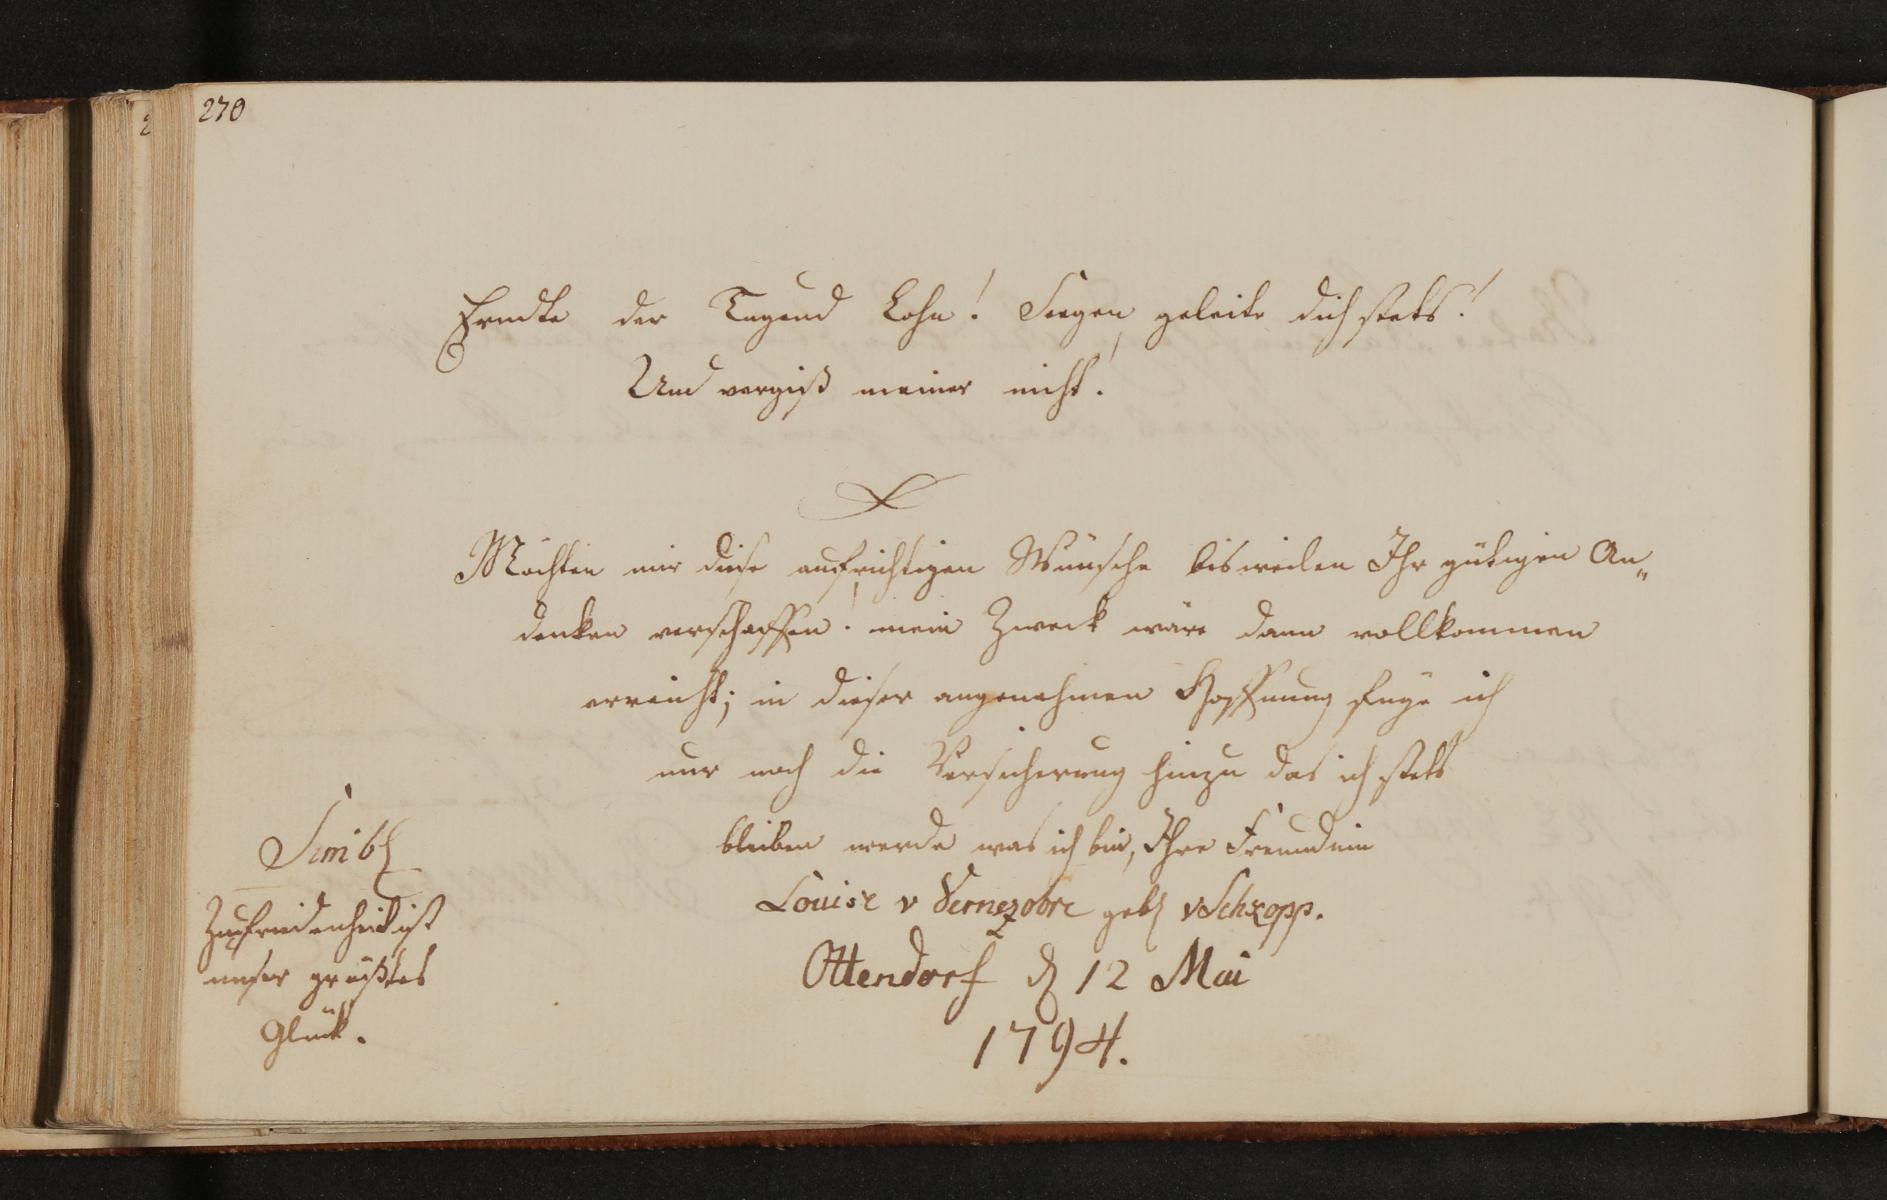 270
Erndte der Tugend Lohn! Seegen geleite dich stets!
Und vergiß meiner nicht!
Möchten mir diese aufrichtigen Wünsche bisweilen Ihr gütigen An„
denken verschaffen! mein Zweck wäre dann vollkommen
erreicht; in dieser angenehmen Hoffnung fuge ich
nur noch die Versicherung hinzu das ich stets
bleiben werde was ich bin, Ihre Freundin
Louise v Vernezobre geb v Schkopp.
Ottendorf d 12 Mai
1794.
Simb
Zufriedenheit ist
unser größtes
Glück.